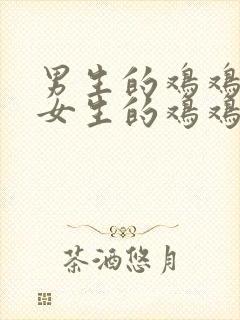 男生的鸡鸡
女生的鸡鸡
茶酒悠月